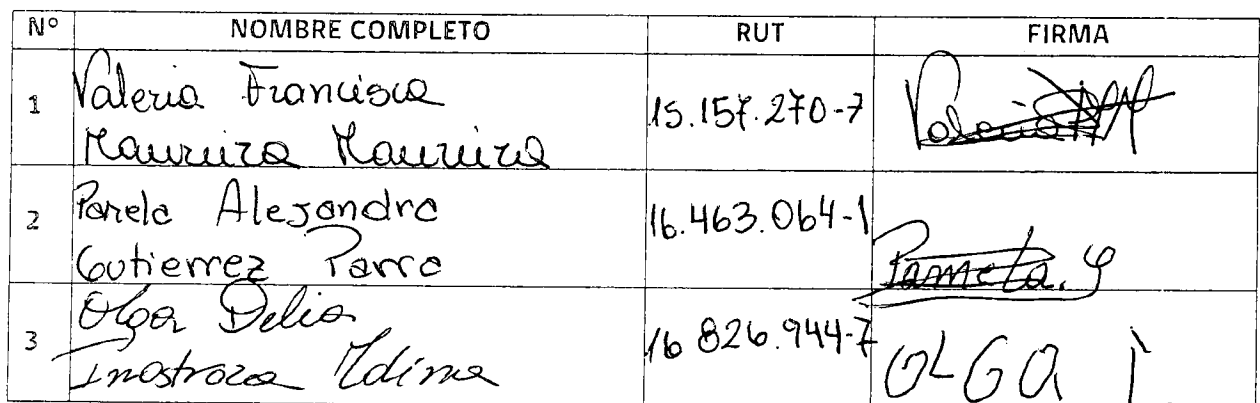 Nº NOMBRE COMPLETO RUT FIRMA
1 Valeria Francisca
Maureira Maureira 15.157.270-7 Valeria
2 Pamela Alejandra
Gutierrez Parra 16.463.064-1 Pamela. G
3 Olga Delia
Inostroza Molina 16 826.944-7 OLGA I